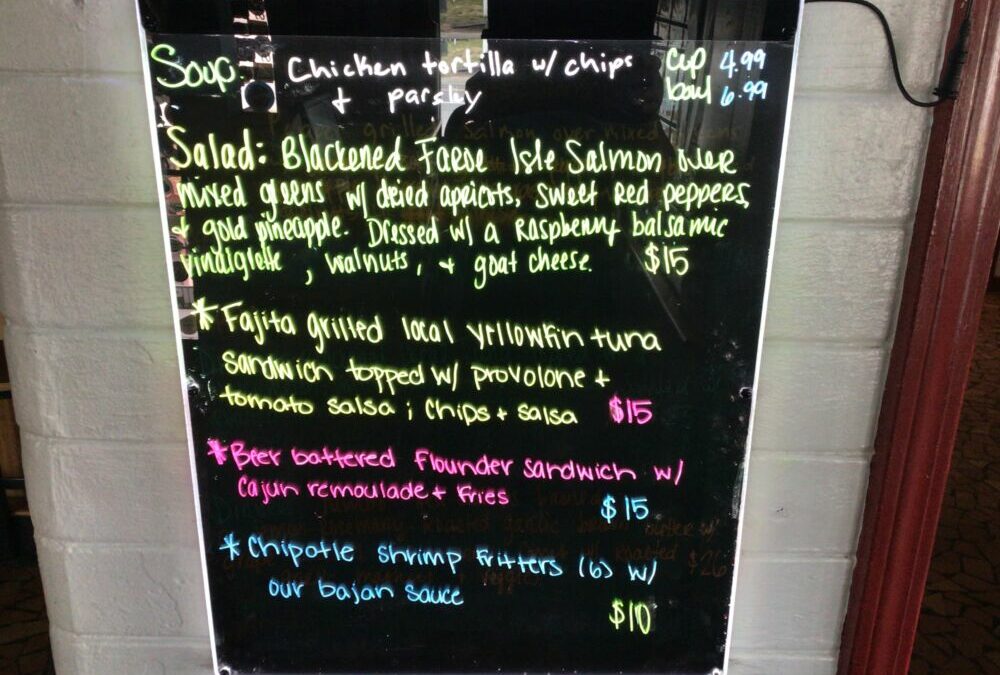 Soup: Chicken tortilla w/ chips cup 4.99
+ parsley bowl 6.99
Salad: Blackened Faroe Isle Salmon over
mixed greens w/ dried apricots, sweet red peppers,
+ gold pineapple. Dressed w/ a Raspberry balsamic
vinaigrette, walnuts, + goat cheese. $15
* Fajita grilled local yellowfin tuna
sandwich topped w/ provolone +
tomato salsa ; chips + salsa $15
* Beer battered flounder sandwich w/
Cajun remoulade + fries $15
* Chipotle shrimp fritters (6) w/
our bajan sauce
$10